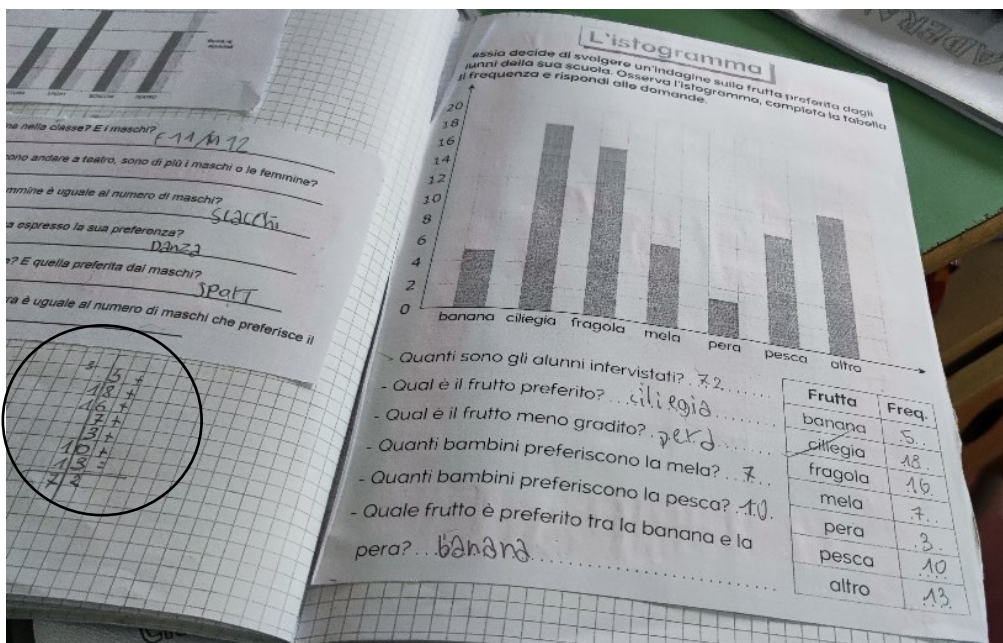 na nella classe? E i maschi?
F 11/M 12
ono andare a teatro, sono di più i maschi o le femmine?
mmine è uguale al numero di maschi?
scacchi
a espresso la sua preferenza?
Danza
e? E quella preferita dai maschi?
SPORT
ra è uguale al numero di maschi che preferisce il
3
5 +
18 +
16 +
7 +
3 +
10 +
13 =
72
L'istogramma
essia decide di svolgere un'indagine sulla frutta preferita dagli
lunni della sua scuola. Osserva l'istogramma, completa la tabella
di frequenza e rispondi alle domande.
20
18
16
14
12
10
8
6
4
2
0
banana ciliegia fragola mela pera pesca altro
- Quanti sono gli alunni intervistati? 72
- Qual è il frutto preferito? ciliegia
- Qual è il frutto meno gradito? pera
- Quanti bambini preferiscono la mela? 7
- Quanti bambini preferiscono la pesca? 10
- Quale frutto è preferito tra la banana e la
pera? banana
Frutta Freq.
banana 5
ciliegia 18
fragola 16
mela 7
pera 3
pesca 10
altro 13